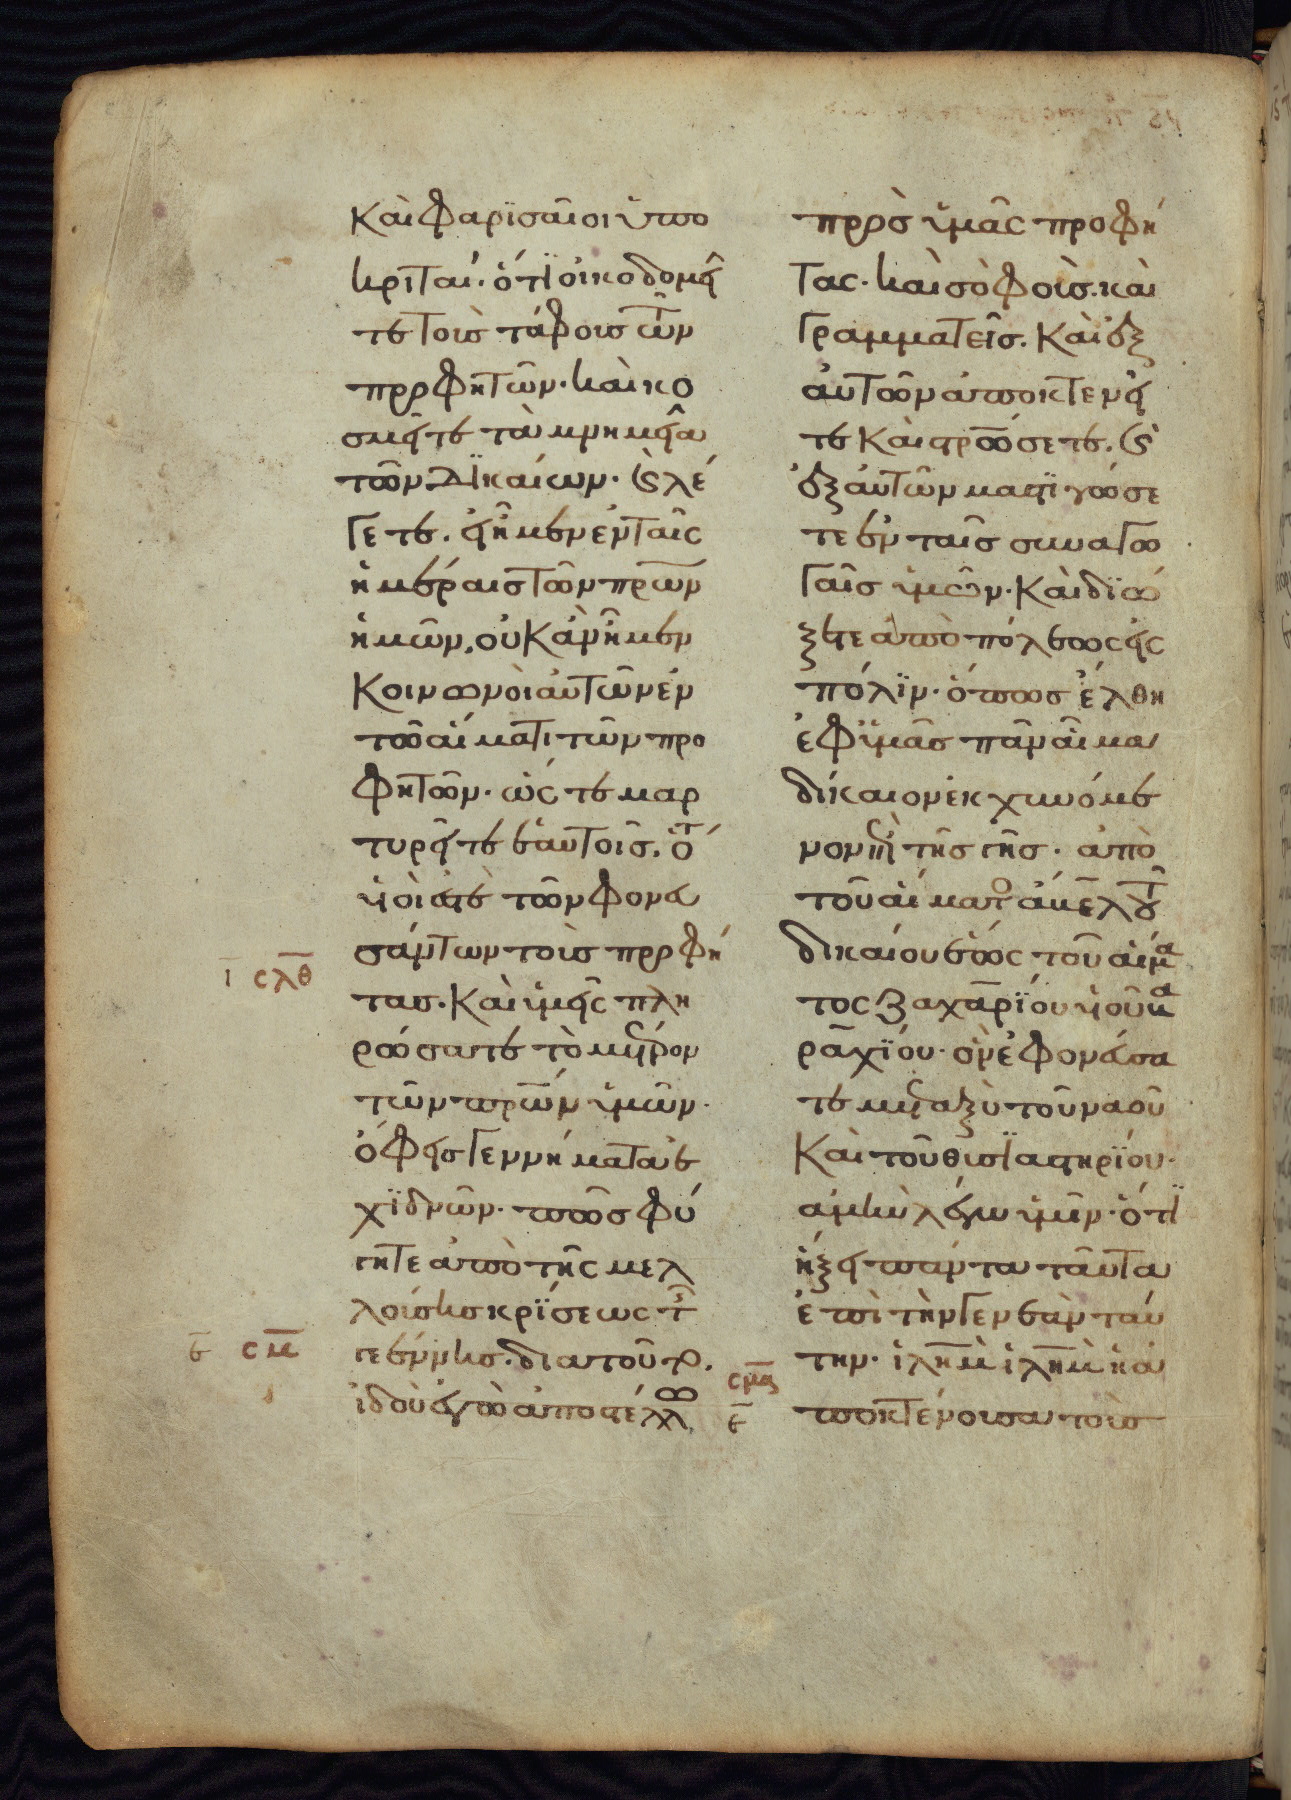 καὶ φαρϊσαῖοι ὑπο
κριταί· ὅτϊ οἰκοδομεῖ
τε τοὶς τάφοις τῶν
προφητῶν· καὶ κο
σμεῖτε τὰ μνημεῖα
τῶν δϊκαίων· ϗ λέ
γετε. εἰ ἦμεν ἐν ταῖς
ἡμέραις τῶν πρ̅ων
ἡμῶν, οὐκ ἂν ἦμεν
κοινωνοὶ αὐτῶν ἐν
τῶ αἵματι τῶν προ
φητῶν· ὥς τε μαρ
τυρεῖτε ἑαυτοῖς. ὅτ
υἱοί ἐστὲ τῶν φονευ
σάντων τοὶς προφή
ι̅ ϲλ̅θ̅
τασ. καὶ ὑμεῖς πλη
ρώσατε τὸ μέτρον
τῶν πρ̅ων ὑμῶν·
ὄφεις γεννήματα ἐ
χϊδνῶν· πῶς φύ
γητε ἀπὸ τῆς μελ
λούσης κρϊσεως τ
ε̅ ϲμ̅
γεέννης. διατοῦτο.
ἰδοὺ ἐγὼ ἀποστέλλω
πρὸσ ὑμᾶς προφή
τας· καὶ σὸφοὶς. καὶ
γραμματεῖς. καὶ ἐξ
αὐτῶν ἀποκτενεῖ
τε καὶ στρώσετε. ϗ
ἐξ αὐτῶν μαστϊγώσε
τε ἐν ταῖσ συναγω
γαῖς ὑμῶν· καὶ διώ
ξετε ἀπὸ πόλεως εἰς
πόλϊν· ὅπως ἔλθη
ἐφ ὑμᾶς πᾶν αἷμα
δίκαιον ἐκχυνόμε
νον ἐπὶ τῆς γῆς· ἀπὸ
τοῦ αἵματο ἄμελ τοῦ
δικαίου ἕως τοῦ αἵμα
τος ζαχαρϊου υἱοῦ βα
ραχϊου· ὃν ἐφονεύσα
τε μεταξὺ τοῦ ναοῦ
καὶ τοῦ θισϊαστηρϊου·
ἀμὴν λέγω ὑμῖν· ὅτϊ
ἥξει πάντα ταῦτα
ἐπὶ τὴν γενεὰν ταύ
την· ἱλ̅η̅μ̅ ἱλ̅η̅μ̅ ἡ ἀ
ϲμ̅α̅
ε̅
ποκτένουσα τοὶς